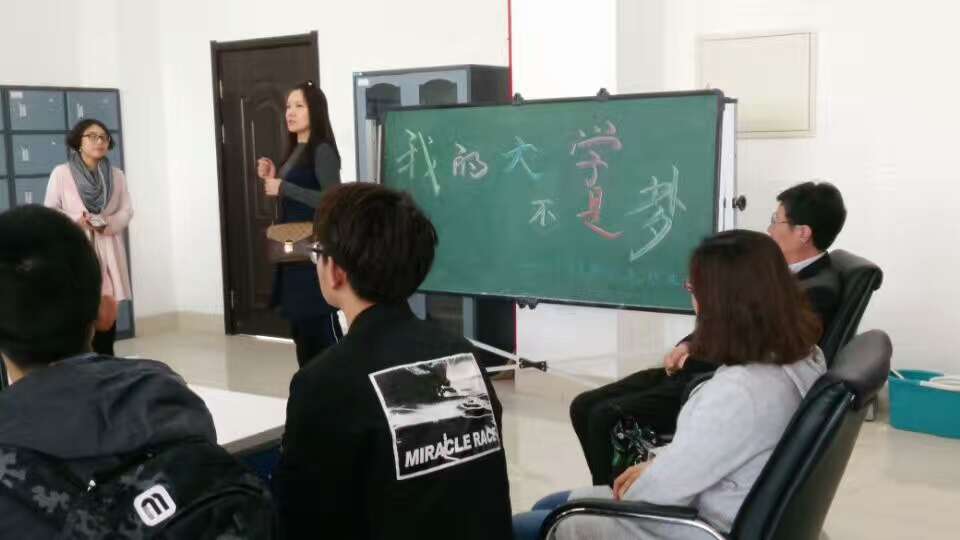 我的大学
不是梦
MIRACLE RACE